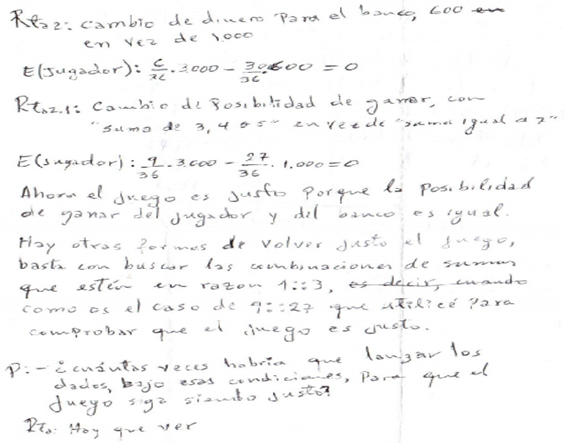 Rta2: Cambio de dinero para el banco, 600 en
en vez de 1.000
E(Jugador): 6/36 . 3.000 - 30/36 . 600 = 0
Rta2.1: Cambio de Posibilidad de ganar, con
"suma de 3, 4 o 5" en vez de "suma igual a 7"
E(Jugador): 9/36 . 3.000 - 27/36 . 1.000 = 0
Ahora el juego es justo porque la posibilidad
de ganar del jugador y del banco es igual.
Hay otras formas de volver justo el juego,
basta con buscar las combinaciones de sumas
que estén en razon 1::3, es decir, cuando
como es el caso de 9::27 que utilicé para
comprobar que el juego es justo.
P: - ¿cuántas veces habria que lanzar los
dados, bajo esas condiciones, para que el
Juego siga siendo justo?
Rta: Hay que ver